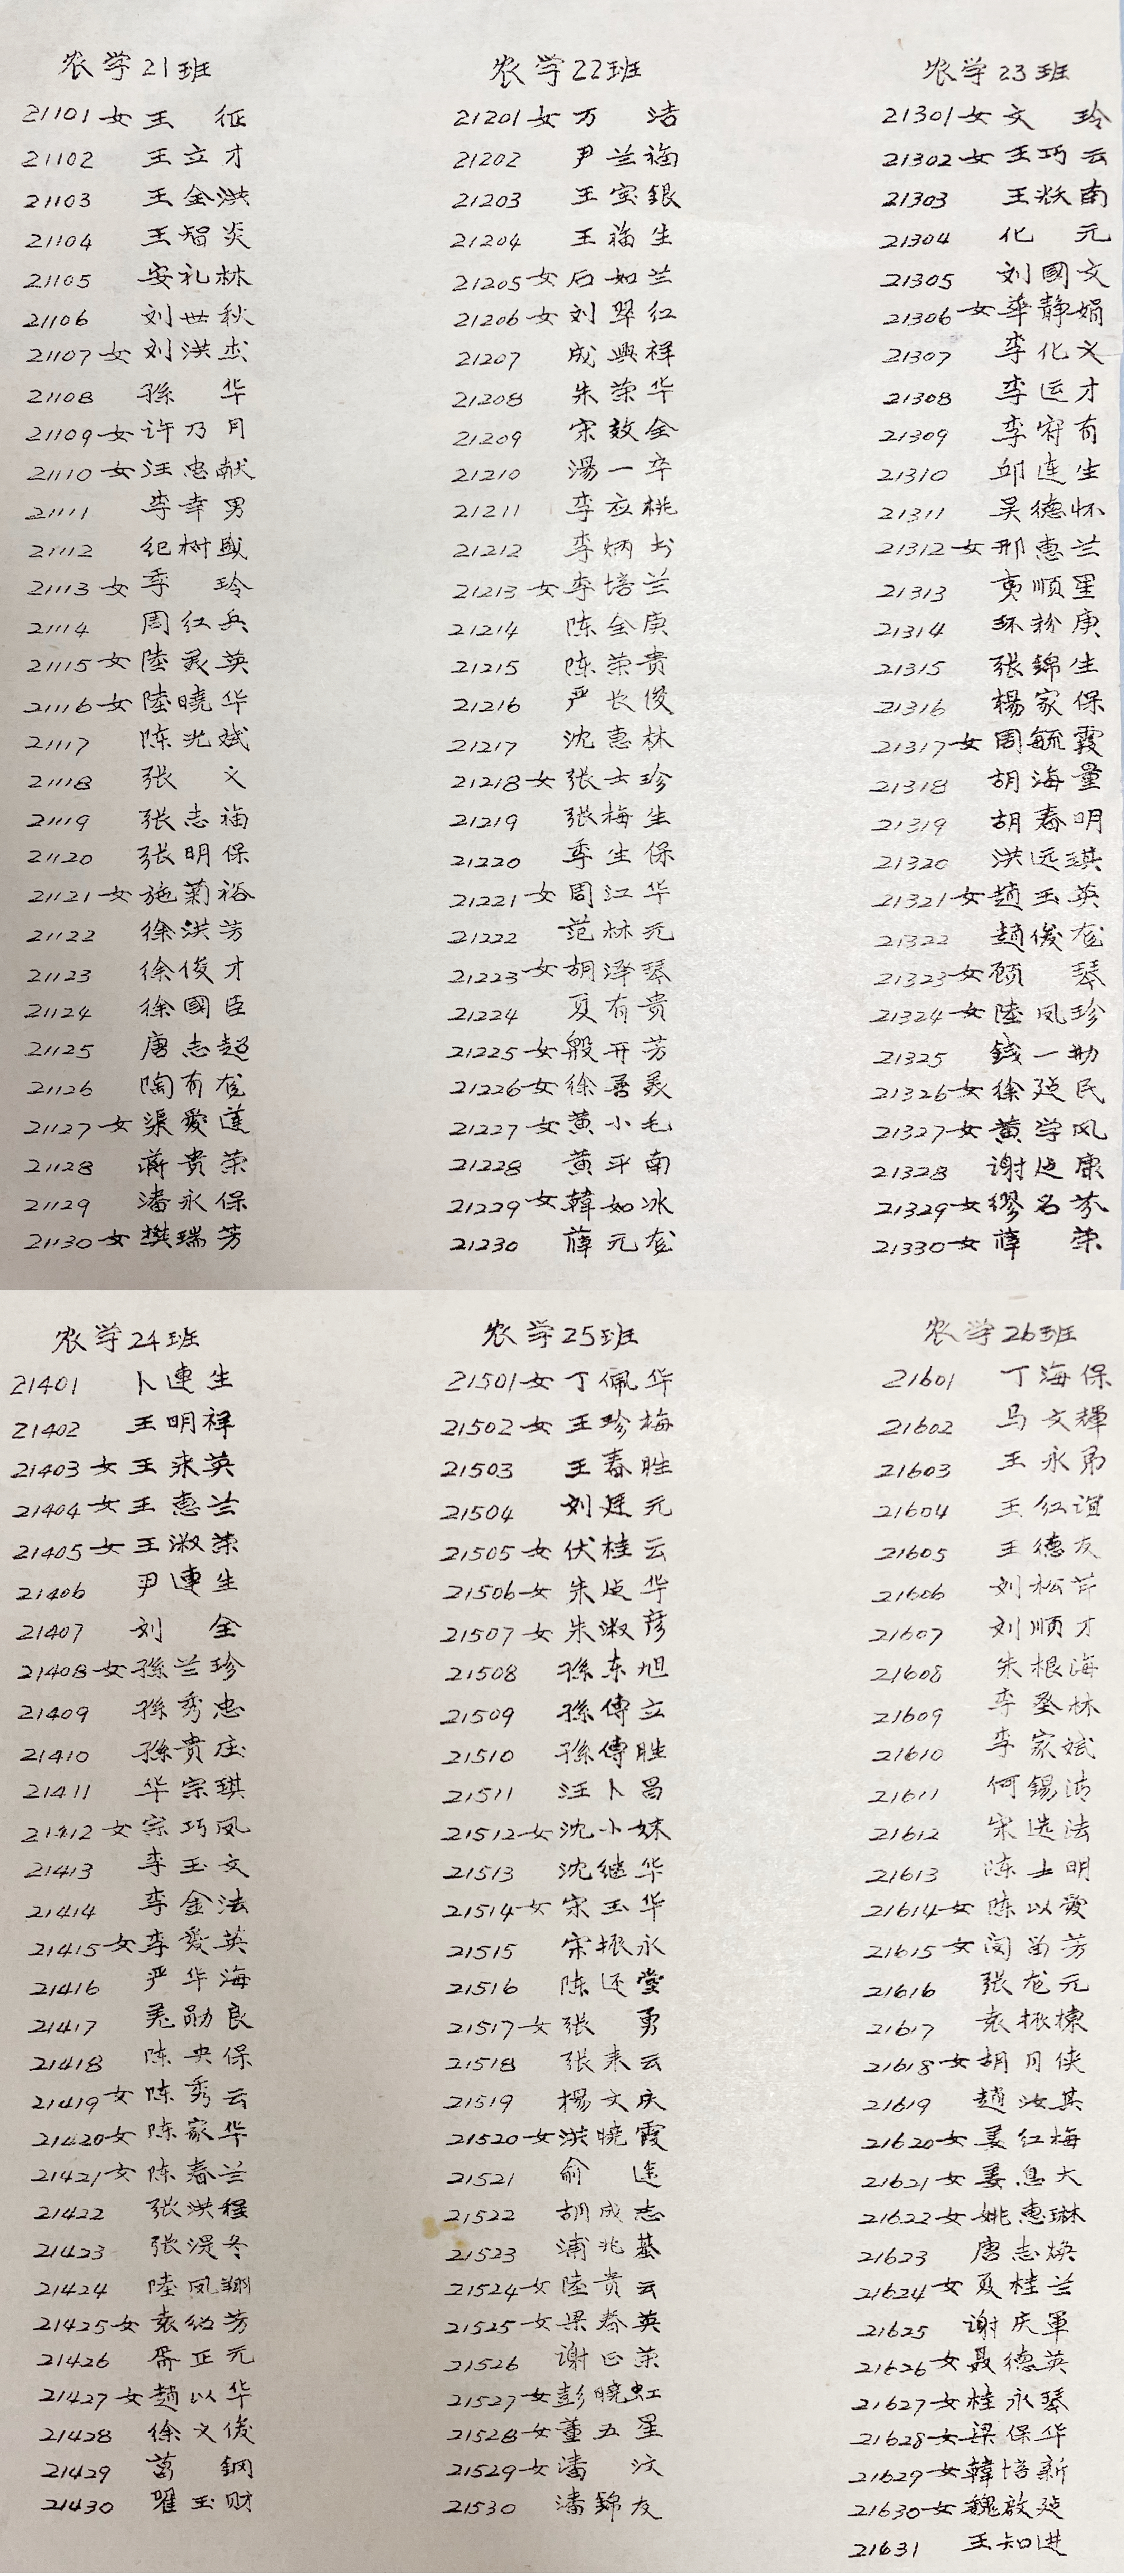 农学21班
21101女王 征
21102 王立才
21103 王金洪
21104 王智炎
21105 安礼林
21106 刘世秋
21107女刘洪
21108 孫 华
21109女许乃月
21110女汪忠献
21111 李幸男
21112 纪树
21113女季 玲
21114 周红兵
21115女陸灵英
21116女陸曉华
21117 陈光斌
21118 张 义
21119 张志福
21120 张明保
21121女施菊裕
21122 徐洪芳
21123 徐俊才
21124 徐國臣
21125 唐志超
21126 陶有龙
21127女渠愛莲
21128 蒋贵荣
21129 潘永保
21130女樊瑞芳
农学22班
21201女万 洁
21202 尹兰福
21203 王宝銀
21204 王福生
21205女石如兰
21206女刘翠红
21207 成興祥
21208 朱荣华
21209 宋效全
21210 湯一卒
21211 李应桃
21212 李炳
21213女李培兰
21214 陈全庚
21215 陈荣贵
21216 严长俊
21217 沈惠林
21218女张士珍
21219 张梅生
21220 季生保
21221女周江华
21222 范林元
21223女胡泽琴
21224 夏有贵
21225女殷开芳
21226女徐善美
21227女黄小毛
21228 黄平南
21229女韓如冰
21230 薛元龙
农学23班
21301女文 玲
21302女王巧云
21303 王跃南
21304 化 元
21305 刘國文
21306女华静娟
21307 李化义
21308 李运才
21309 李府有
21310 邱连生
21311 吴德怀
21312女邢惠兰
21313 夷顺星
21314 环粉庚
21315 张錦生
21316 楊家保
21317女周毓霞
21318 胡海量
21319 胡春明
21320 洪远琪
21321女趙玉英
21322 趙俊龙
21323女顾 琴
21324女陸凤珍
21325 錢一勤
21326女徐延民
21327女黄学风
21328 谢廷康
21329女缪名芬
21330女薛 荣
农学24班
21401 卜連生
21402 王明祥
21403女王来英
21404女王惠兰
21405女王淑荣
21406 尹連生
21407 刘 全
21408女孫兰珍
21409 孫秀忠
21410 孫贵庄
21411 华宗琪
21412女宗巧凤
21413 李玉文
21414 李金法
21415女李爱英
21416 严华海
21417 勋良
21418 陈央保
21419女陈秀云
21420女陈家华
21421女陈春兰
21422 张洪程
21423 张湜冬
21424 陸凤翔
21425女袁幼芳
21426 斎正元
21427女趙以华
21428 徐义俊
21429 葛 钢
21430 瞿玉财
农学25班
21501女丁佩华
21502女王珍梅
21503 王春胜
21504 刘廷元
21505女伏桂云
21506女朱华
21507女朱淑彦
21508 孫东旭
21509 孫傳立
21510 孫傳胜
21511 汪卜昌
21512女沈小妹
21513 沈继华
21514女宋玉华
21515 宋振永
21516 陈还堂
21517女张 勇
21518 张来云
21519 楊文庆
21520女洪晓霞
21521 俞 遥
21522 胡成志
21523 浦兆基
21524女陸贵云
21525女梁春英
21526 谢曰荣
21527女彭晓虹
21528女董五星
21529女潘 汶
21530 潘錦友
农学26班
21601 丁海保
21602 马文輝
21603 王永弟
21604 王红谊
21605 王德友
21606 刘松芹
21607 刘顺才
21608 朱根海
21609 李圣林
21610 李家斌
21611 何锡涛
21612 宋选法
21613 陈士明
21614女陈以爱
21615女闵苗芳
21616 张龙元
21617 袁振棟
21618女胡月侠
21619 趙汝其
21620女姜红梅
21621女姜息大
21622女姚惠琳
21623 唐志焕
21624女夏桂兰
21625 谢庆軍
21626女聂德英
21627女桂永琴
21628女梁保华
21629女韓培新
21630女魏啟廷
21631 王知进